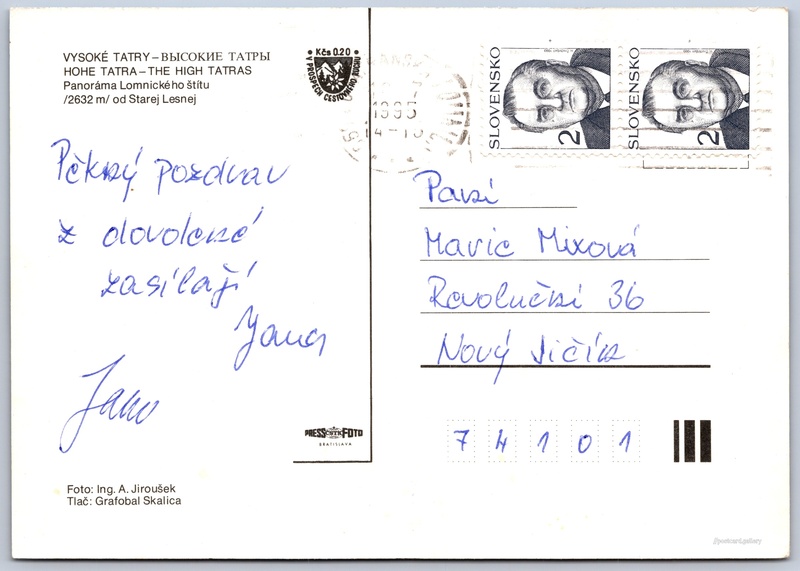 VYSOKÉ TATRY – ВЫСОКИЕ ТАТРЫ
HOHE TATRA – THE HIGH TATRAS
Panoráma Lomnického štítu
/2632 m/ od Starej Lesnej
Kčs 0.20
V PROSPECH CESTOVNÉHO RUCHU
1995
14-15
SLOVENSKO
2
SLOVENSKO
2
Pěkný pozdrav
z dovolené
zasílají
Jana
Jano
Paní
Marie Mixová
Revoluční 36
Nový Jičín
74101
PRESSFOTO
BRATISLAVA
Foto: Ing. A. Jiroušek
Tlač: Grafobal Skalica